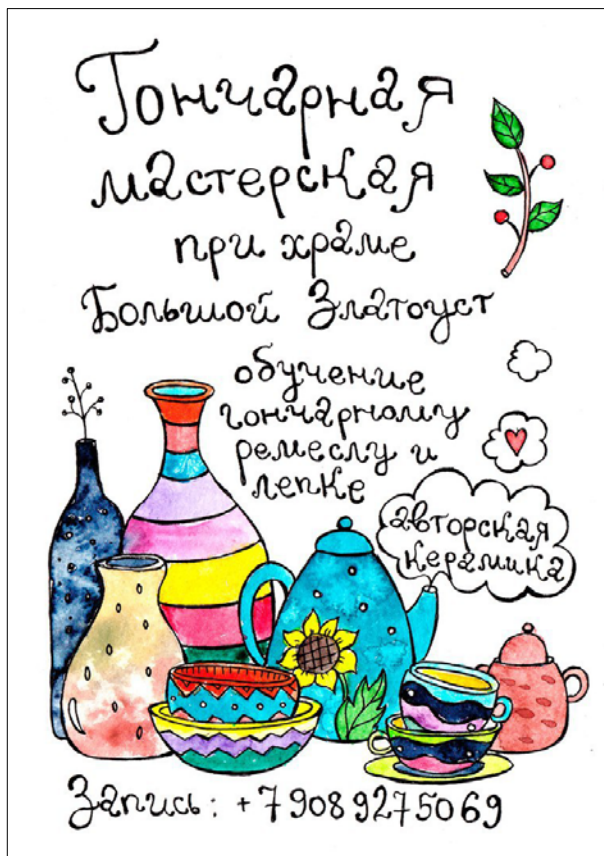 Гончарная
мастерская
при храме
Большой Златоуст
обучение
гончарному
ремеслу и
лепке
авторская
керамика
Запись: +79089275069